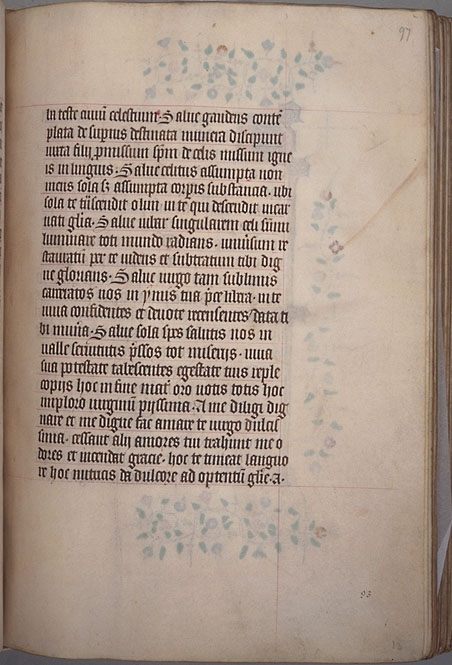 97
la teste civiū celestium. Salue gaudens conte
plata de supius destinata munera discipuut
iuxta filij pmissum spm de celis missum igne
is in linguis. Salue celitus assumpta non
meus sola sz assumpta corpis substancia. ubi
sola te descendit olim in te qui descendit incar
nati glia. Salue iubar singularem celi sumi
luminare toti mundo radians. uniusum re
stauratū per te uidens et subtratum tibi dig
ne glorians. Salue uirgo tam sublimis
carceratos nos in ymis tua pce libera. in te
una confidentes et deuote recensentes data ti
bi munia. Salue sola spes salutis nos in
ualle seruitutis pssos tot miserijs. inuicta
sua potestate talescentes egestate tuis reple
copijs hoc in fine mat oro uotis totis hoc
imploro uirginū pijssima. A me diligi dig
nare et me digne fac amare te uirgo dulcis
sima. cessant alij amores tui trahunt me o
dores et incendat gracie. hoc te timeat languo
re hoc nutricis da dulcore ad optentū glie. A.
93